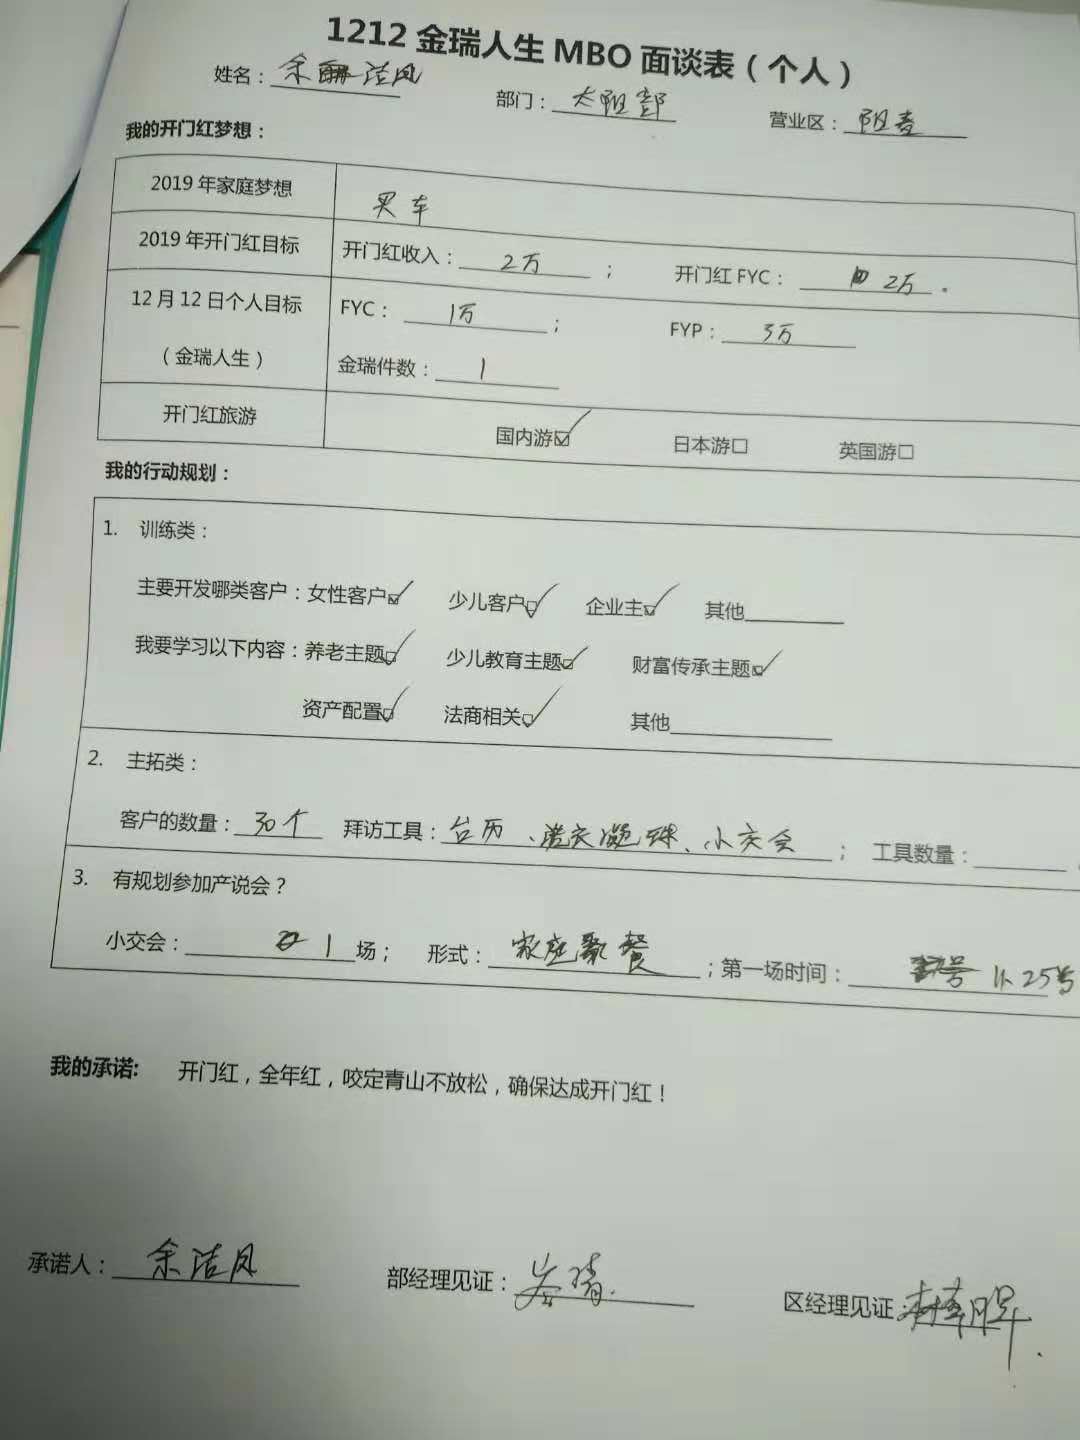 1212 金瑞人生 MBO 面谈表（个人）
姓名：余洁凤 部门：太阳部 营业区：阳
我的开门红梦想：
2019 年家庭梦想 买车
2019 年开门红目标 开门红收入：2万； 开门红 FYC：2万。
12 月 12 日个人目标 FYC：1万； FYP：3万
（金瑞人生） 金瑞件数：1
开门红旅游 国内游☑ 日本游□ 英国游□
我的行动规划：
1. 训练类：
主要开发哪类客户：女性客户☑ 少儿客户☑ 企业主☑ 其他
我要学习以下内容：养老主题☑ 少儿教育主题☑ 财富传承主题☑
资产配置☑ 法商相关☑ 其他
2. 主拓类：
客户的数量：30个 拜访工具：台历、洗衣凝珠、小交会； 工具数量：
3. 有规划参加产说会？
小交会：1场； 形式：家庭聚餐；第一场时间：11.25号
我的承诺: 开门红，全年红，咬定青山不放松，确保达成开门红！
承诺人：余洁凤 部经理见证： 区经理见证：